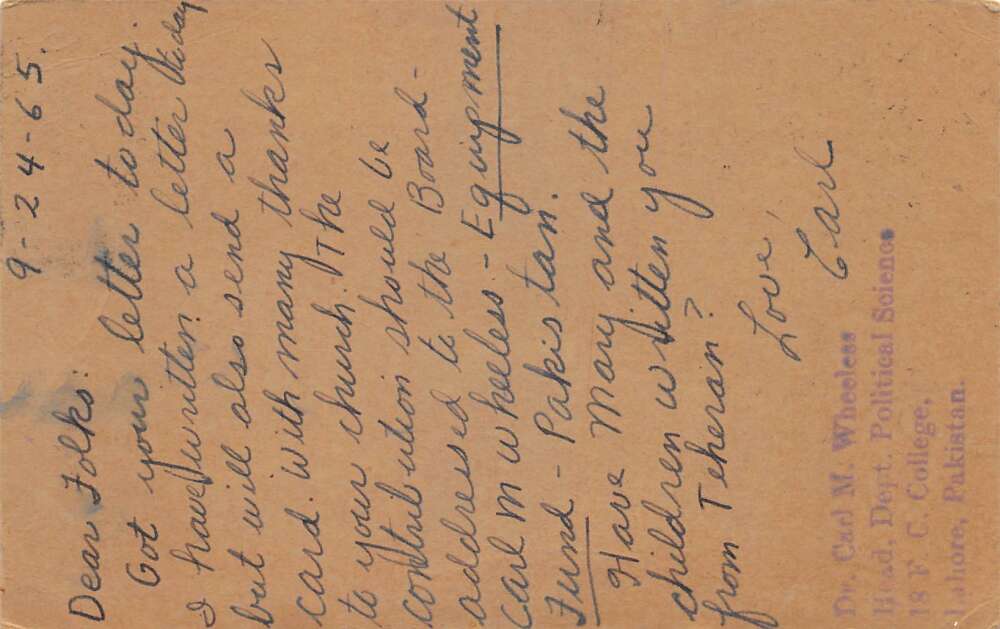 9-24-65.
Dear Folks:
Got your letter to day.
I have written a letter to day
but will also send a
card with many thanks
to your church. The
contribution should be
addressed to the Board-
Carl M Wheeless - Equipment
Fund - Pakistan.
Have Mary and the
children written you
from Teheran?
Love
Carl
Dr. Carl M. Wheeless
Head, Dept. Political Science
18 F. C. College,
Lahore, Pakistan.